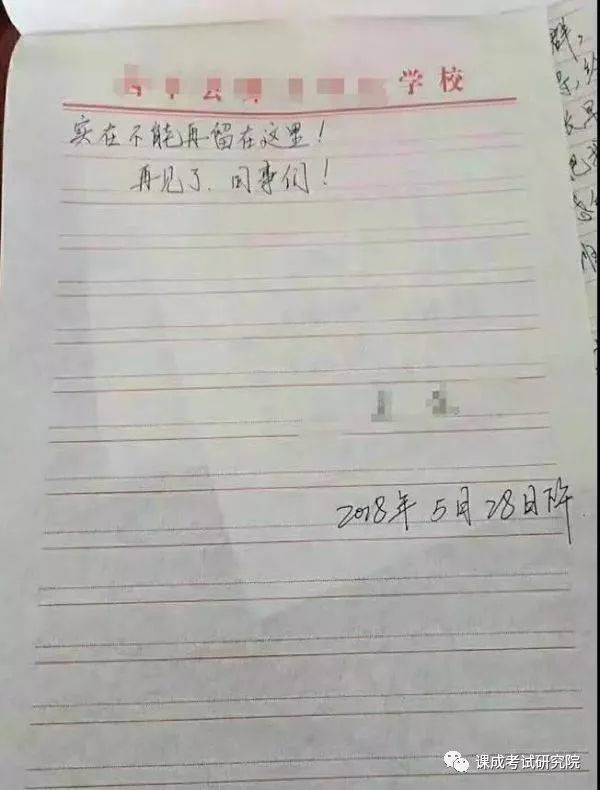 学校
实在不能再留在这里！
再见了．同事们！
2018年 5月28日下午
课成考试研究院